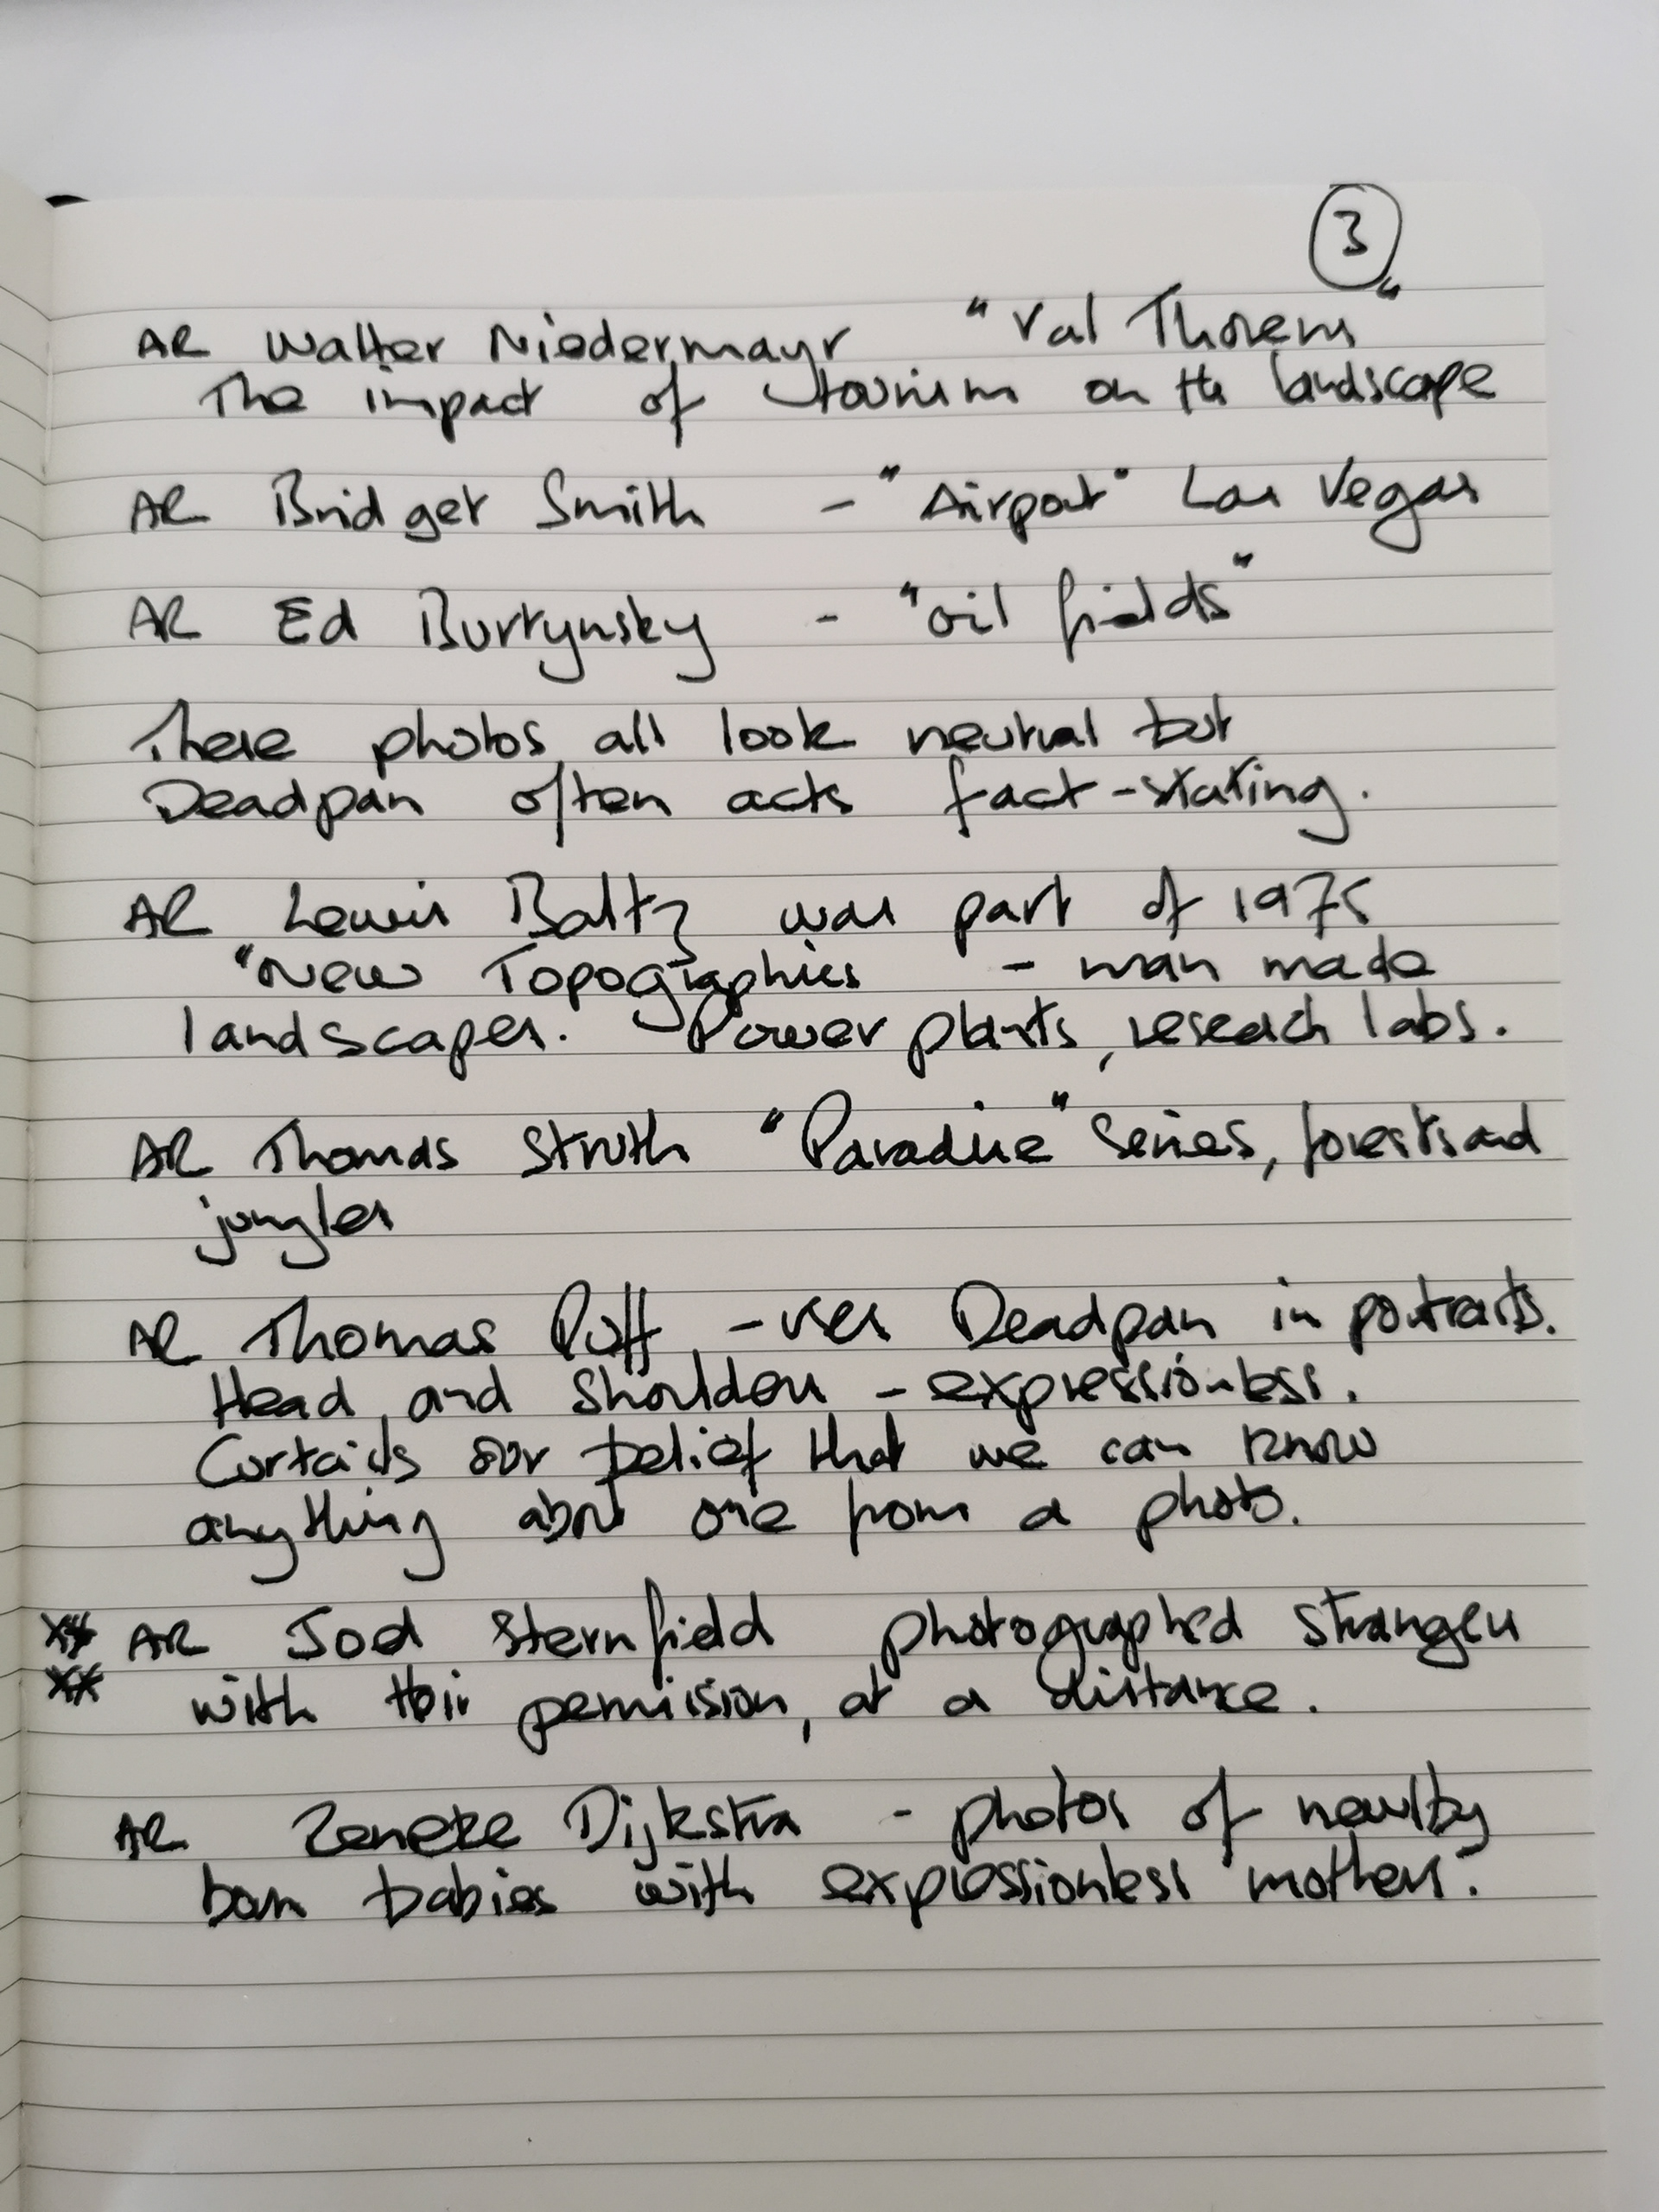 3
AR Walter Niedermayr "Val Thorens"
The impact of tourism on the landscape
AR Bridget Smith - "Airport" Las Vegas
AR Ed Burtynsky - "oil fields"
These photos all look neutral but
Deadpan often acts fact-stating.
AR Lewis Baltz was part of 1975
"New Topographies - man made
landscapes. Power plants, reseach labs.
AR Thomas Struth "Paradise" series, forests and
jungles
AR Thomas Ruff - uses Deadpan in portraits.
Head and shoulders - expressionless.
Curtails our belief that we can know
anything about one from a photo.
** AR Joel Sternfield photographed strangers
** with their permission, at a distance.
AR Reneke Dijkstra - photos of newlby
born babies with expressionless mothers.